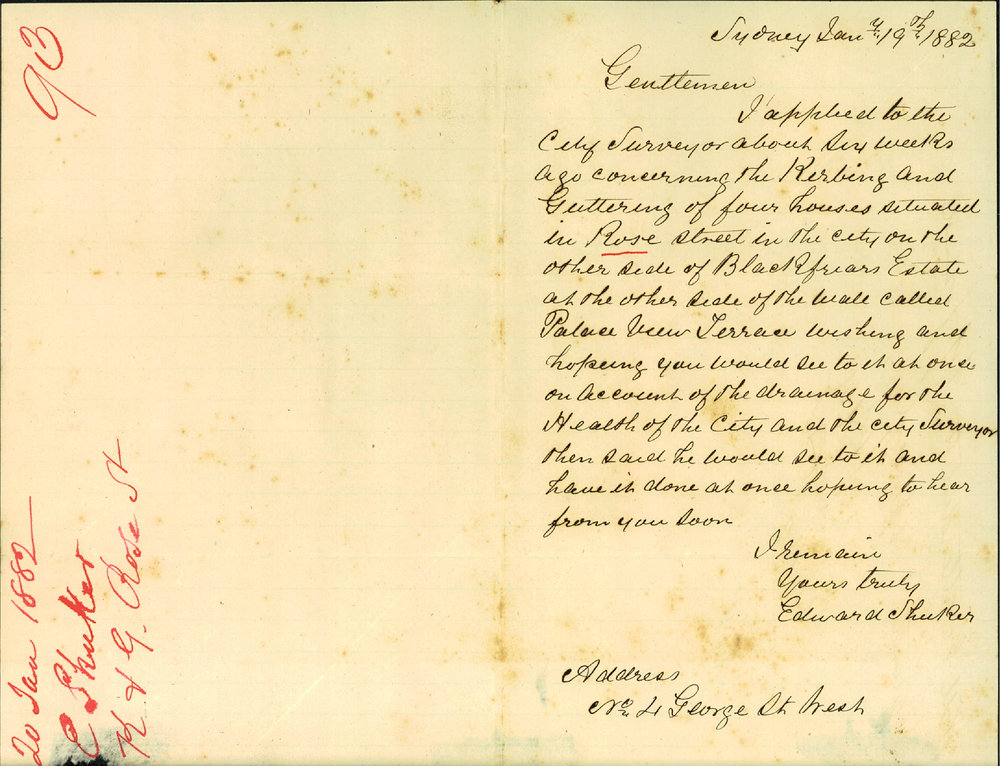 93
20 Jan 1882
E Shuker
K & G. Rose St
Sydney Jany. 19th. 1882
Gentlemen
I applied to the
City Surveyor about six weeks
ago concerning the Kerbing and
Guttering of four houses situated
in Rose street in the city on the
other side of Blackfriars Estate
at the other side of the wall called
Palace View Terrace wishing and
hoping you would see to it at once
on account of the drainage for the
Health of the City and the city Surveyor
then said he would see to it and
have it done at once hoping to hear
from you soon
I remain
Yours truly
Edward Shuker
Address
No. 4 George St West